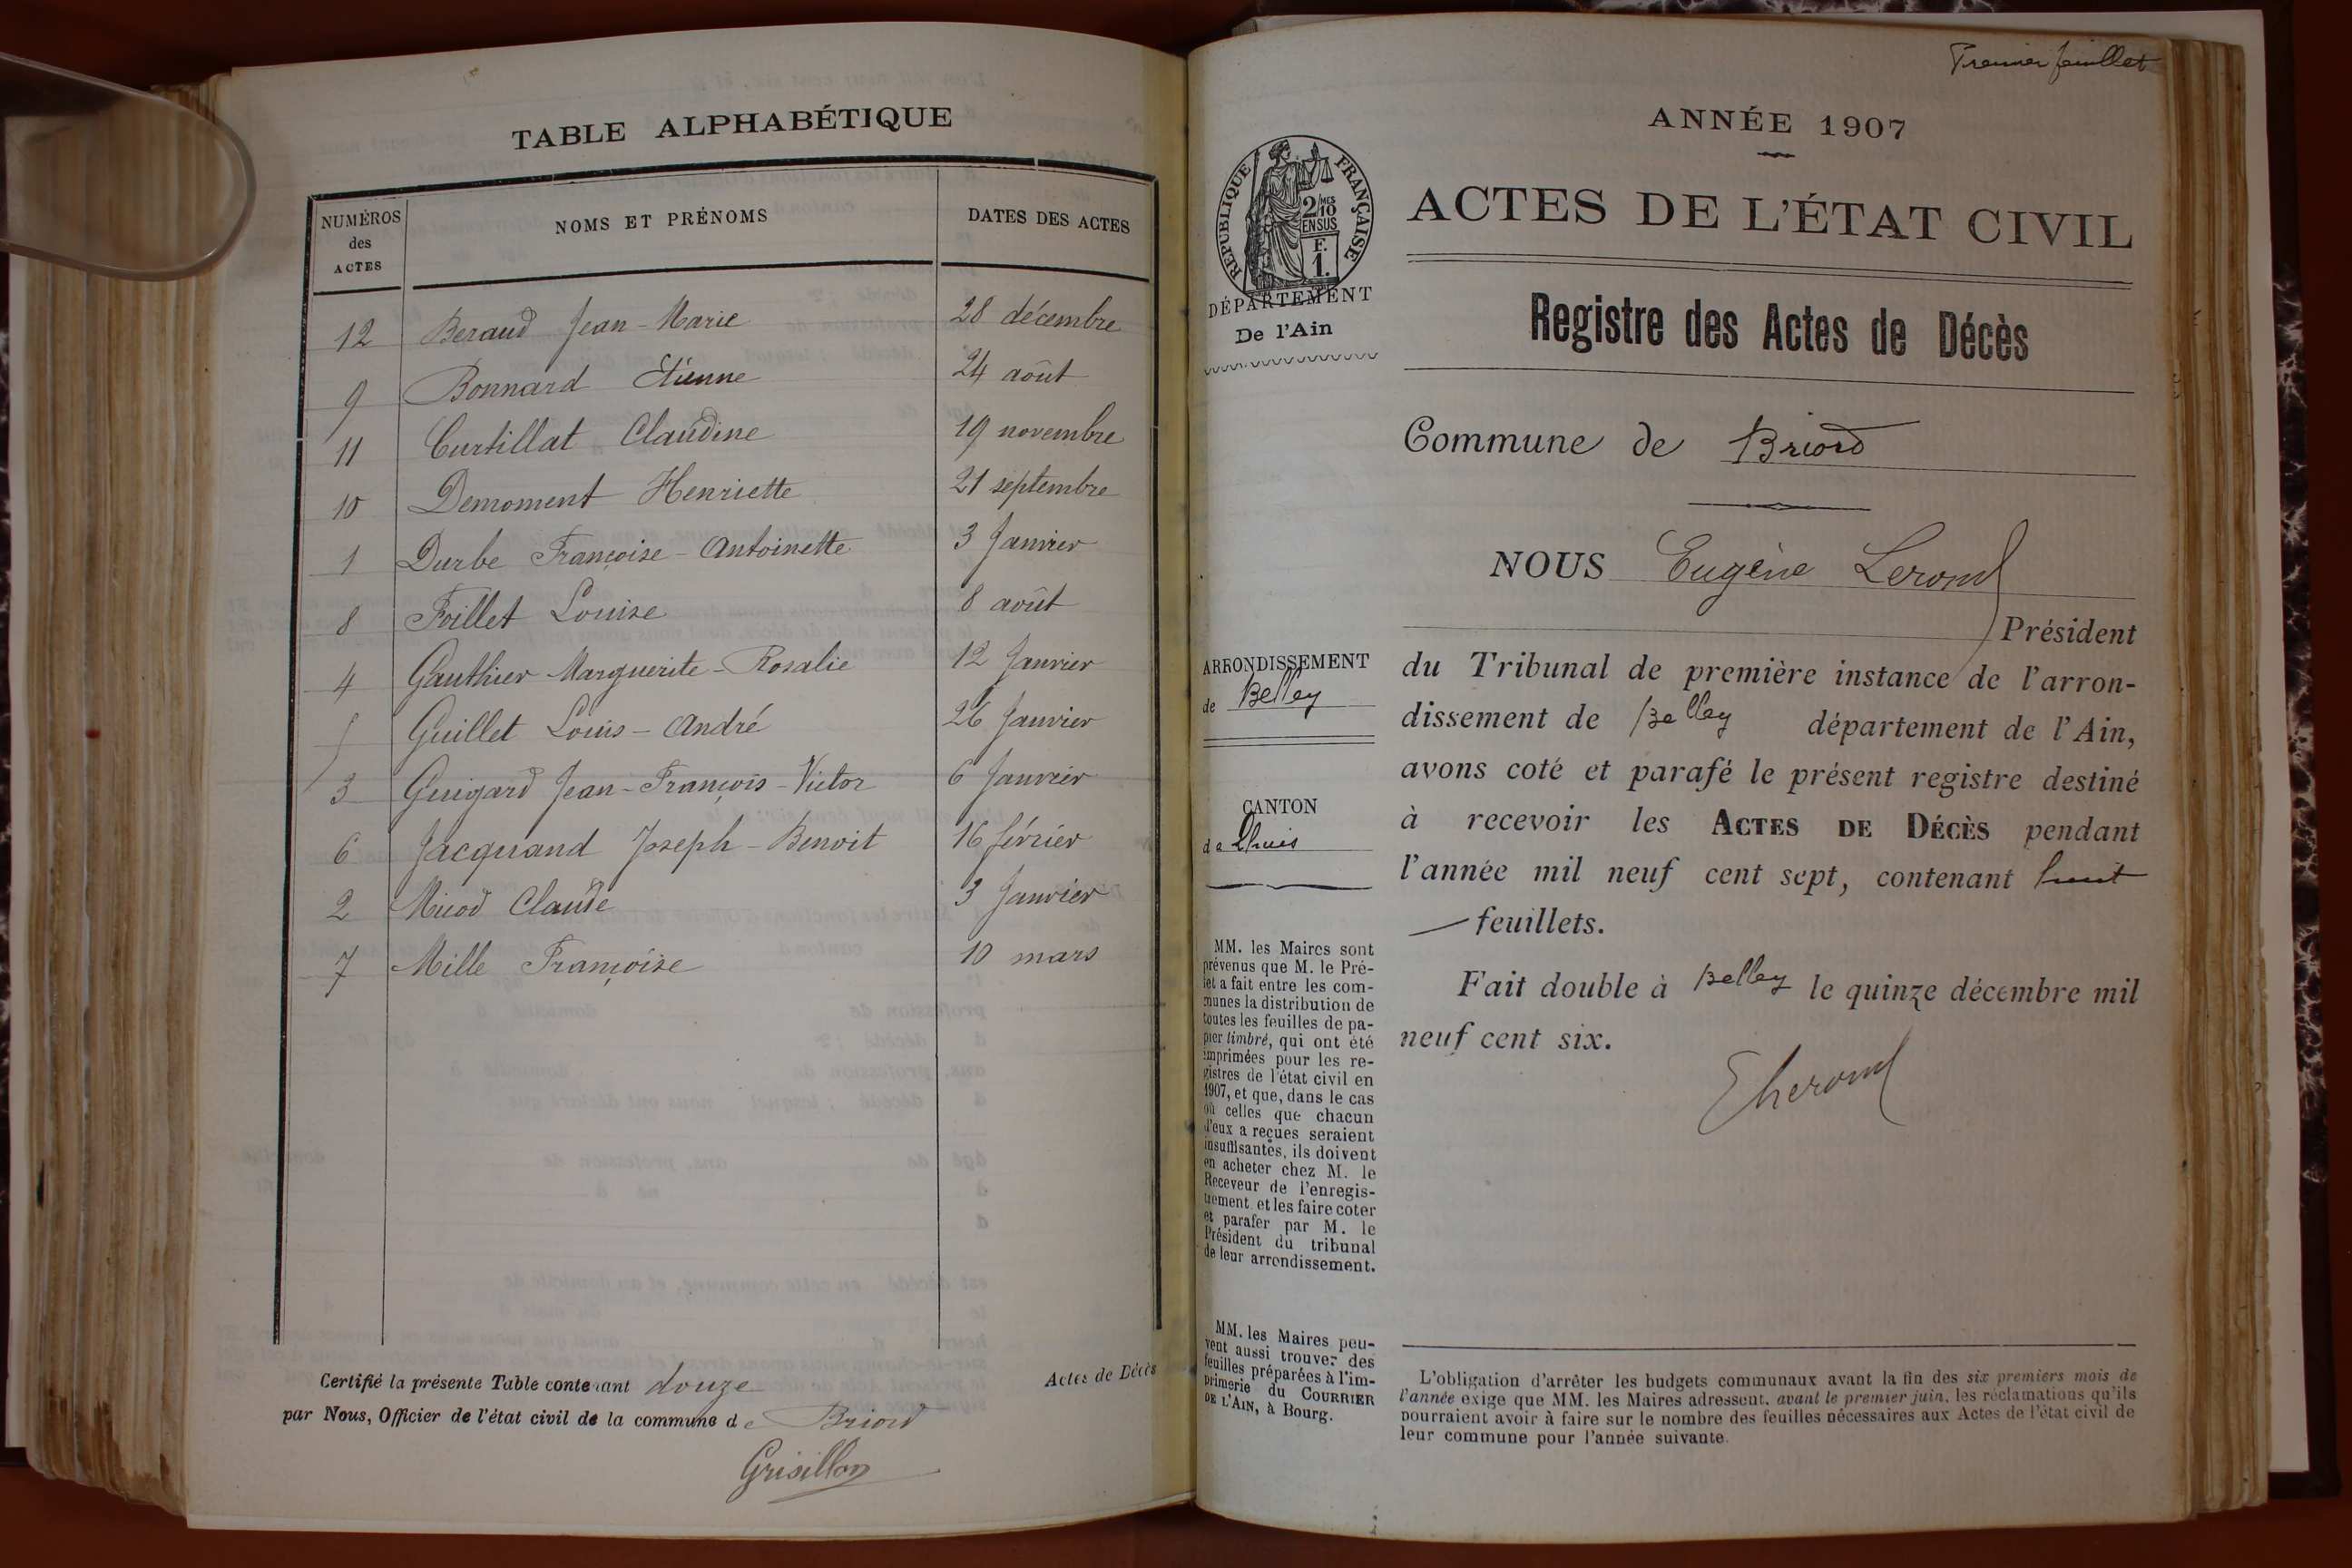 TABLE ALPHABÉTIQUE
NUMÉROS des ACTES NOMS ET PRÉNOMS DATES DES ACTES
12 Beraud Jean-Marie 28 décembre
9 Bonnard Etienne 24 août
11 Curtillat Claudine 19 novembre
10 Demoment Henriette 21 septembre
1 Durbe Françoise-Antoinette 3 Janvier
8 Foillet Louise 8 août
4 Gauthier Marguerite-Rosalie 12 Janvier
5 Guillet Louis-André 26 Janvier
3 Guigard Jean-François-Victor 6 Janvier
6 Jacquand Joseph-Benoit 16 février
2 Micod Claude 3 Janvier
7 Mille Françoise 10 mars
Certifié la présente Table contenant douze
par Nous, Officier de l'état civil de la commune de Briord
Grisillon
Actes de Décès
Premier feuillet
ANNÉE 1907
RÉPUBLIQUE FRANÇAISE
2/10 MES
EN SUS
F.
1.
DÉPARTEMENT
De l'Ain
ACTES DE L'ÉTAT CIVIL
Registre des Actes de Décès
Commune de Briord
NOUS Eugène Lerond
Président
du Tribunal de première instance de l'arron-
dissement de Belley département de l'Ain,
avons coté et parafé le présent registre destiné
à recevoir les ACTES DE DÉCÈS pendant
l'année mil neuf cent sept, contenant huit
feuillets.
Fait double à Belley le quinze décembre mil
neuf cent six.
ELerond
ARRONDISSEMENT
de Belley
CANTON
de Lhuis
MM. les Maires sont
prévenus que M. le Pré-
fet a fait entre les com-
munes la distribution de
toutes les feuilles de pa-
pier timbré, qui ont été
imprimées pour les re-
gistres de l'état civil en
1907, et que, dans le cas
où celles que chacun
d'eux a reçues seraient
insuffisantes, ils doivent
en acheter chez M. le
Receveur de l'enregis-
trement et les faire coter
et parafer par M. le
Président du tribunal
de leur arrondissement.
MM. les Maires peu-
vent aussi trouver des
feuilles préparées à l'im-
primerie du COURRIER
DE L'AIN, à Bourg.
L'obligation d'arrêter les budgets communaux avant la fin des six premiers mois de
l'année exige que MM. les Maires adressent, avant le premier juin, les réclamations qu'ils
pourraient avoir à faire sur le nombre des feuilles nécessaires aux Actes de l'état civil de
leur commune pour l'année suivante.